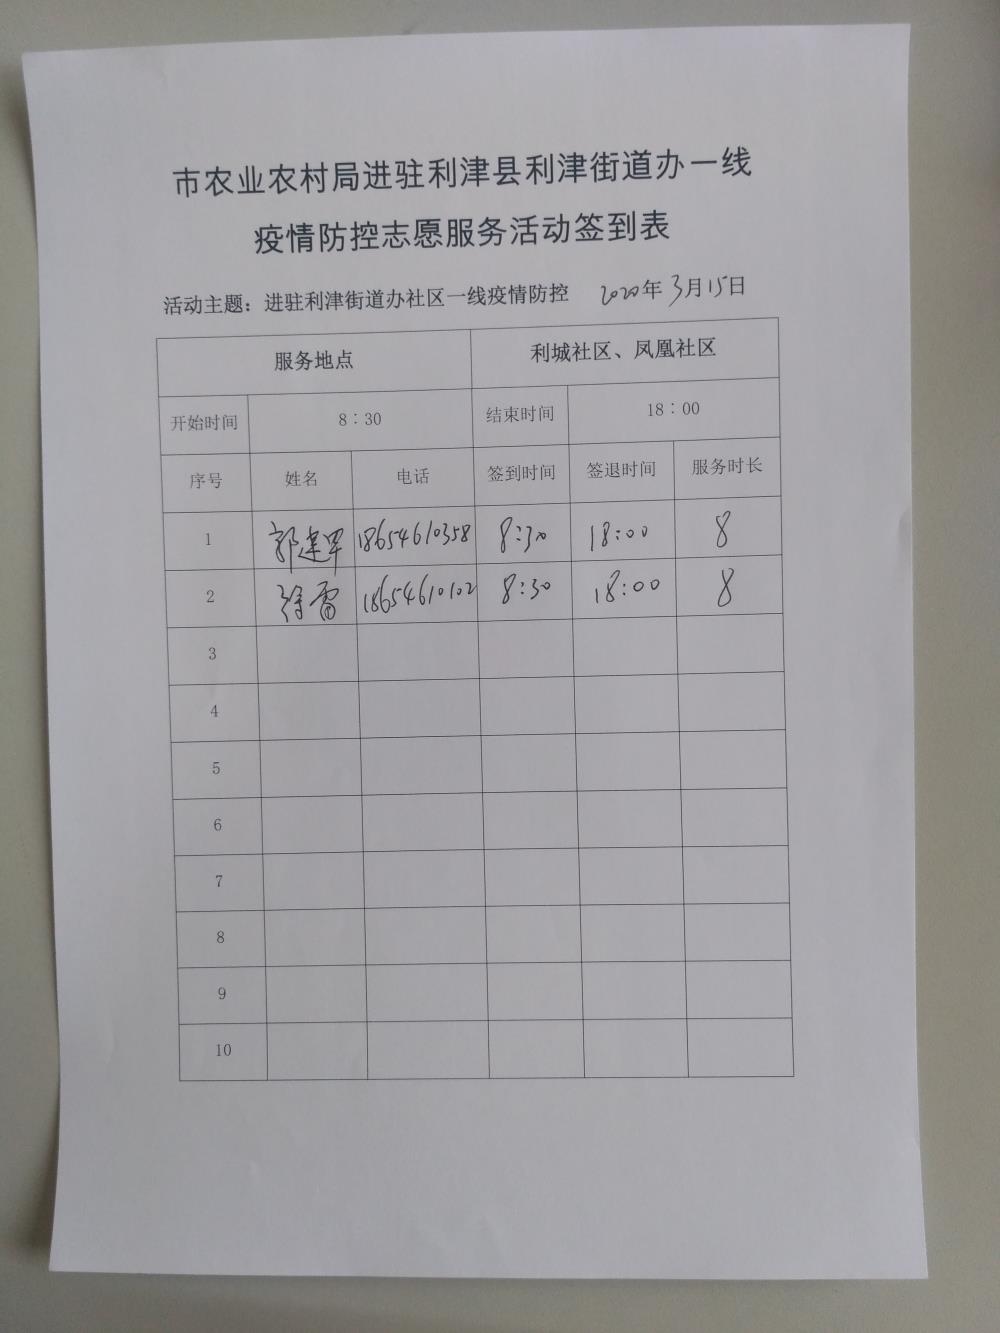 市农业农村局进驻利津县利津街道办一线
疫情防控志愿服务活动签到表
活动主题：进驻利津街道办社区一线疫情防控 2020年3月15日
服务地点 利城社区、凤凰社区
开始时间 8：30 结束时间 18：00
序号 姓名 电话 签到时间 签退时间 服务时长
1 郭建军 18654610358 8:30 18:00 8
2 徐雷 18654610102 8:30 18:00 8
3
4
5
6
7
8
9
10